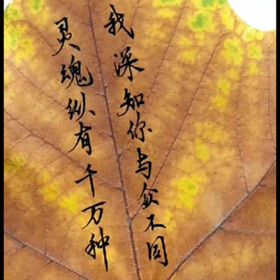 我深知你与众不同
灵魂纵有千万种